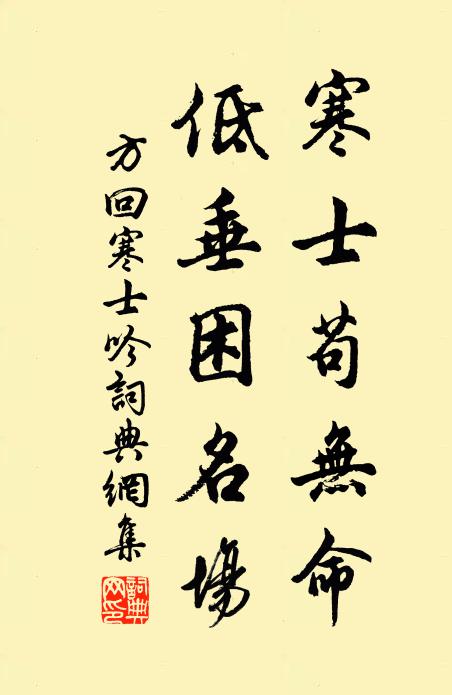 寒士苟無命
低垂困名場
方回寒士吟詞典網集
詞典網印